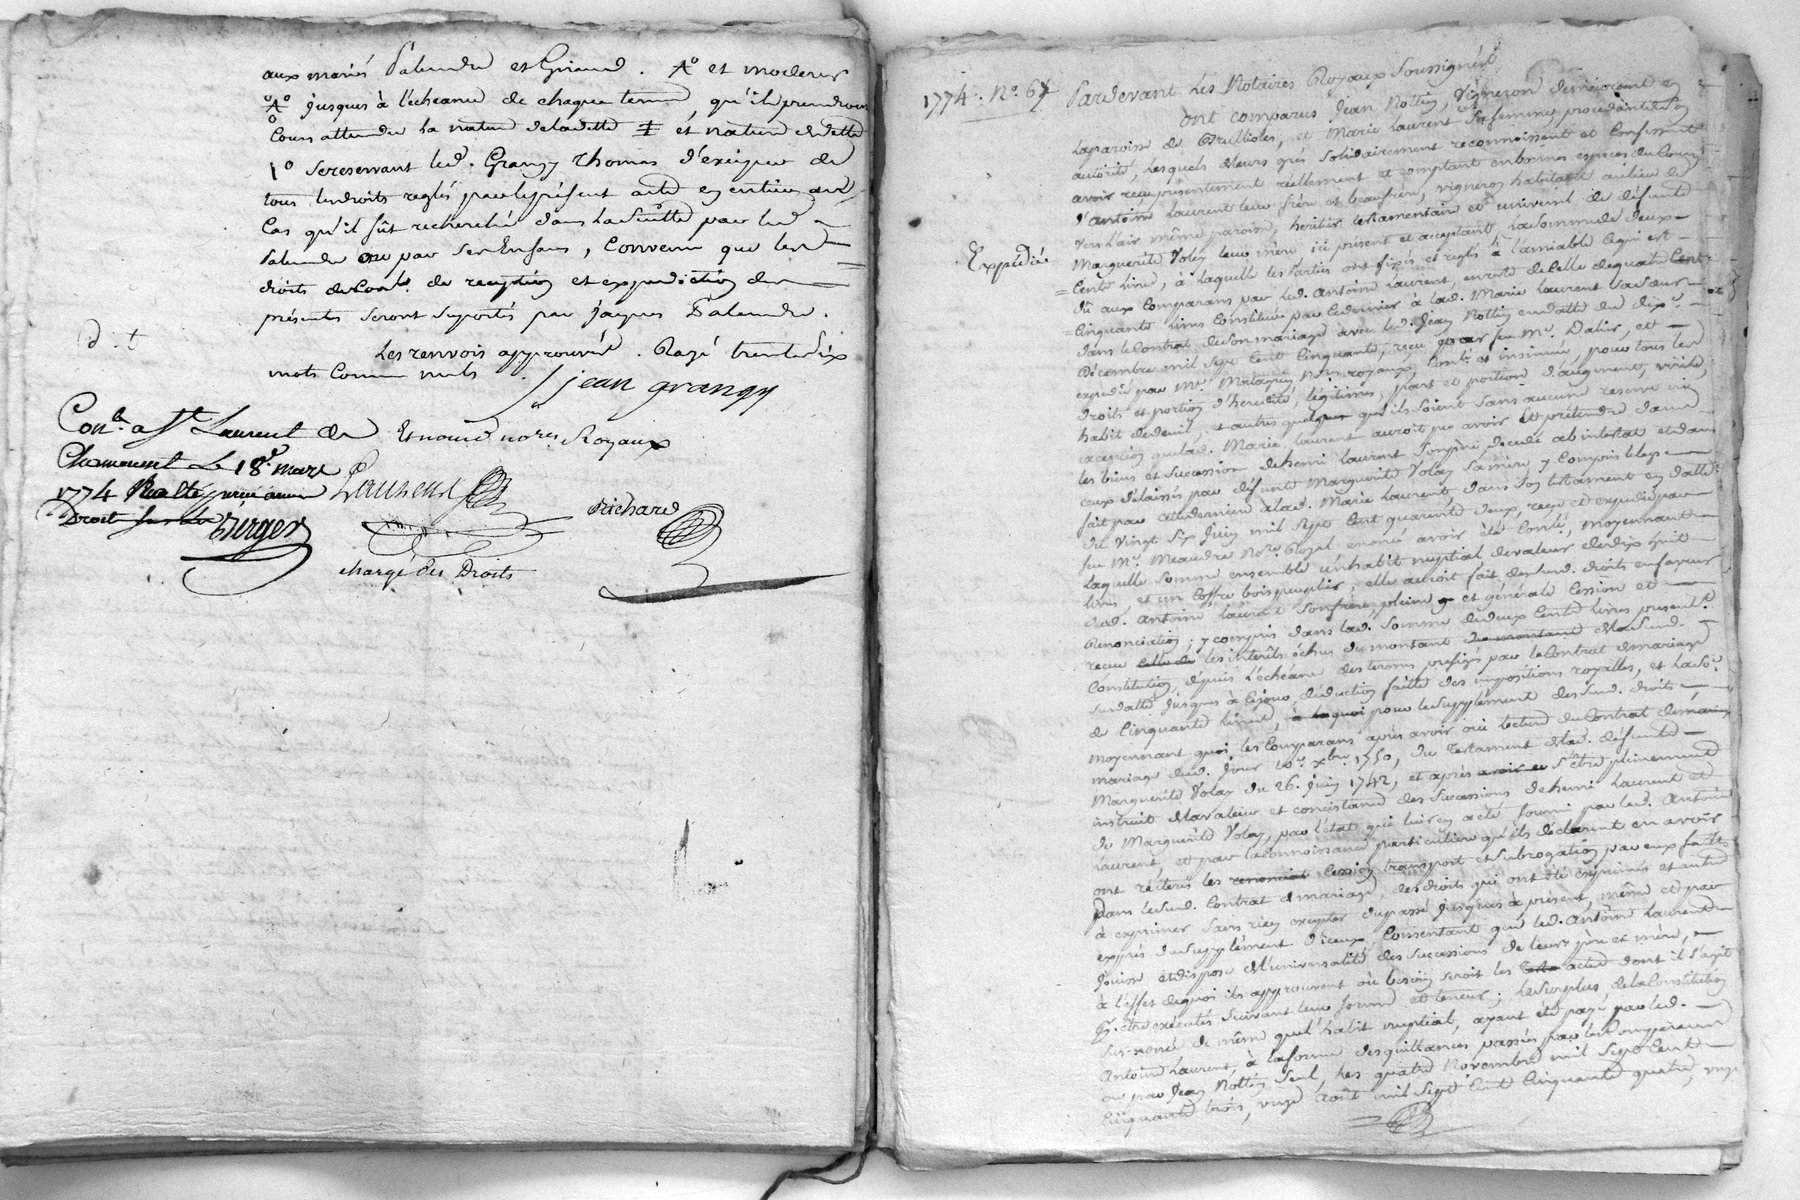 aux mariés Palandre et Giraud. A° et moderer
A° jusques à l'écheance de chaque terme, qu'ils prendront
Cours attendu la nature de la dette ‡ et nature de dette
1° Se reservant led. Grangy Thomas d'exiger de
tous les droits reglés par le présent acte en entier au
Cas qu'il fût recherché dans la suitte par led.
Palandre ou par ses Enfans, Convenu que les
droits de Conle. de reception et expedition des
présentes seront suportés par jacques Palandre.
Les renvois approuvés. Rayé trente dix
mots comme nuls
jean grangy
Conlé. a St. Laurent de
Chamousset le 18e. mars
1774
Berger
nores. Royaux
Laurenson
chargé des Droits
Richard
1774. No. 67
Expedié
Pardevant Les Notaires Royaux Soussignés
Ont comparus Jean Nottin, Vigneron demeurant en
la paroisse de Brullioles, et Marie Laurent Sa femme procedante de son
autorité, Lesquels de leurs grés solidairement reconnoissent et Confessent
avoir reçu présentement réellement et comptant en bonnes especes du Cours
d'antoine Laurent leur frere et beaufrere, vigneron habitant au lieu de
même paroisse, heritier testamentaire et universel de défunte
Marguerite Volay leur mère ici present et acceptant la somme de deux
Cents livres, à laquelle les Parties ont fixés et reglé à l'amiable ce qui est
dû aux Comparans par led. Antoine Laurent, en reste de celle de quatre Cent
Cinquante livres Constituée par ce dernier à lad. Marie Laurent sa sœur
dans le Contrat de Son mariage avec led. Jean Nottin en datte du dix
Décembre mil sept Cent Cinquante, reçu par feu Me. Dalier, et
expedié par Me. nore. royaux, Conlé et insinué, pour tous les
droits et portion d'heredité, légitimes, part et portion d'augment, virile,
habit de deuil, et autres quelques qu'ils soient sans aucune reserve ni
exception que lad. Marie Laurent auroit pu avoir et prétendre dans
les biens et Succession de henri Laurent Son pere decedé ab intestat et dans
ceux delaissés par défunte Marguerite Volay Sa mère y Compris le legs
fait par cette derniere à lad. Marie Laurent, dans Son testament en datte
du Vingt Six Juin mil Sept Cent quarante deux, reçu et expedié par
feu Me. Meaudre nore. Royal enoncé avoir été Conlé, moyennant
Laquelle Somme ensemble un habit nuptial de valeur de dix huit
livres, et un Coffre bois peuplier, elle auroit fait desd. droits en faveur
dud. Antoine Laurent Son frere, pleine et générale Cession et
Renonciation; y compris dans lad. Somme de deux Cents livres présentt.
reçue les interêts échus du montant de lasusd.
Constitution, depuis l'écheance des termes prefigés par le Contrat de mariage
susdatté jusques à Ce jour, déduction faitte des impositions royalles, et la Se.
de Cinquante livres, à laquoi pour le suplément des susd. droits
moyennant quoi les Comparans après avoir oui lecture du Contrat de
mariage dud. jour 10e. xbre. 1750, du Testament de lad. défunte
Marguerite Volay du 26. Juin 1742, et après s'être pleinement
instruit de la valeur et consistance des Successions de henri Laurent et
de Marguerite Volay, par l'état qui leur en a été fourni par led. Antoine
Laurent, et par la connoissance particulière qu'ils déclarent en avoir
ont réiterés les Cession transport et subrogation par eux faittes
Dans lesusd. Contrat de mariage, des droits qui ont été exprimés et autres
à exprimer sans rien excepter du passé jusques à présent, même et par
exprès du suplément d'iceux, Consentant que led. Antoine Laurent
Jouisse et dispose de l'universalité des Successions de leurs père et mère,
à l'effet de quoi ils approuvent où besoin seroit les actes dont il s'agit
Pr. être exécutés suivant leur forme et teneur; le Surplus de la Constitution
Sus-noncé de même que l'habit nuptial, ayant été payé par led.
Antoine Laurent, à la forme des quittances passées par les Comparans
ou par Jean Nottin seul, Les quatre Novembre mil Sept Cent
Cinquante trois, vingt août mil Sept Cent Cinquante quatre, vingt